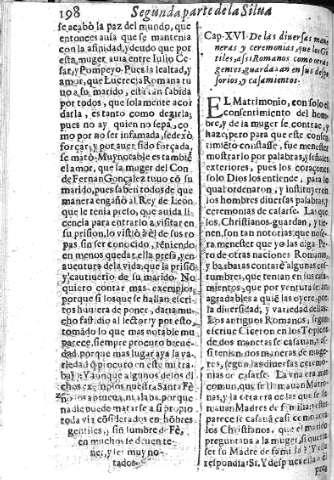 198 Segunda parte de la Silua
se acabò la paz del mundo, que
entonces aula que se mantenia
con la afinidad, y deudo que por
esta muger auia entre Iulio Ce-
sar, y Pompeyo. Pues la lealtad, y
amor, que Lucrecia Romana tu
uo a su marido, està tan sabida
por todos, que solamente acor
darla, es tanto como dezirla;
pues no ay quien no sepa, co-
mo por no ser infamada, se dexò
forçar, y por auer sido forçada,
se matò. Muy notable es tambiẽ
el amor, que la muger del Con
de Fernan Gonçalez tuuo cõ su
marido, pues sabẽ todos de que
manera engañò al Rey de Leon
que le tenia preso, que auida li-
cencia para entrarlo a visitar en
su prision, lo vistiò a èl de sus ro
pas sin ser conocido, teniendo
en menos quedar ella presa, y en
auentura de la vida, que la prisiõ
y cautiuerio de su marido. No
quiero contar mas exemplos,
porque si los que se hallan escri-
tos huuiera de poner, daria mu-
cho fastidio al lector: y por esto
tomado lo que mas notable me
parece, siempre procuro breue-
dad, porque mas lugar aya la va-
riedad
y aunque algunos de los di
chos exẽplos nuestra Santa Fè
porque
nadie puede matarse a si propio
toda via considerados en hõbres
gentiles, y sin lumbre de Fè,
en mucho se deuen te-
ner, y ser muy no-
tados.
Cap. XVI. De las diuersas ma-
neras y ceremonias, que los Gẽ
tiles, assi Romanos como otras
gentes, guardauan en sus despo
sorios, y casamientos.
EL Matrimonio, con solo el
consentimiento del hom-
bre, y de la muger se contrae, y
haze, pero para que este consen
timiẽto constasse, fue menester
mostrarlo por palabras, y señales
exteriores, pues los coraçones
solo Dios los entiende, para lo
qual ordenaron, y instituyeron
los hombres diuersas palabras, y
ceremonias de casarse. Las que
los Christianos guardan, y tie-
nen, son tan notorias que no se-
ra menester que yo las diga. Pe-
ro de otras naciones Romanas,
y barbaras contarè algunas cos-
tumbres, que tenian en sus casa-
mientos, que por ventura seran
agradables a quiẽ las oyere, por
la diuersidad, y variedad dellas.
Los antiguos Romanos, segun
escriue Ciceron en los Topicos
de dos maneras se casauan, assi
si tenian dos maneras de muge-
res, segun las diuersas ceremo-
nias de casarse. La vna era mas
comun, que se llamauan Matro-
nas, y la otra era de las que se lla
mauan Madres de familia: esto
parece se casauã casi como ago-
ra los Christianos, que el marido
preguntaua a la muger, si queria
ser su Madre de familia? Y ella
respondia Si. Y despues ella